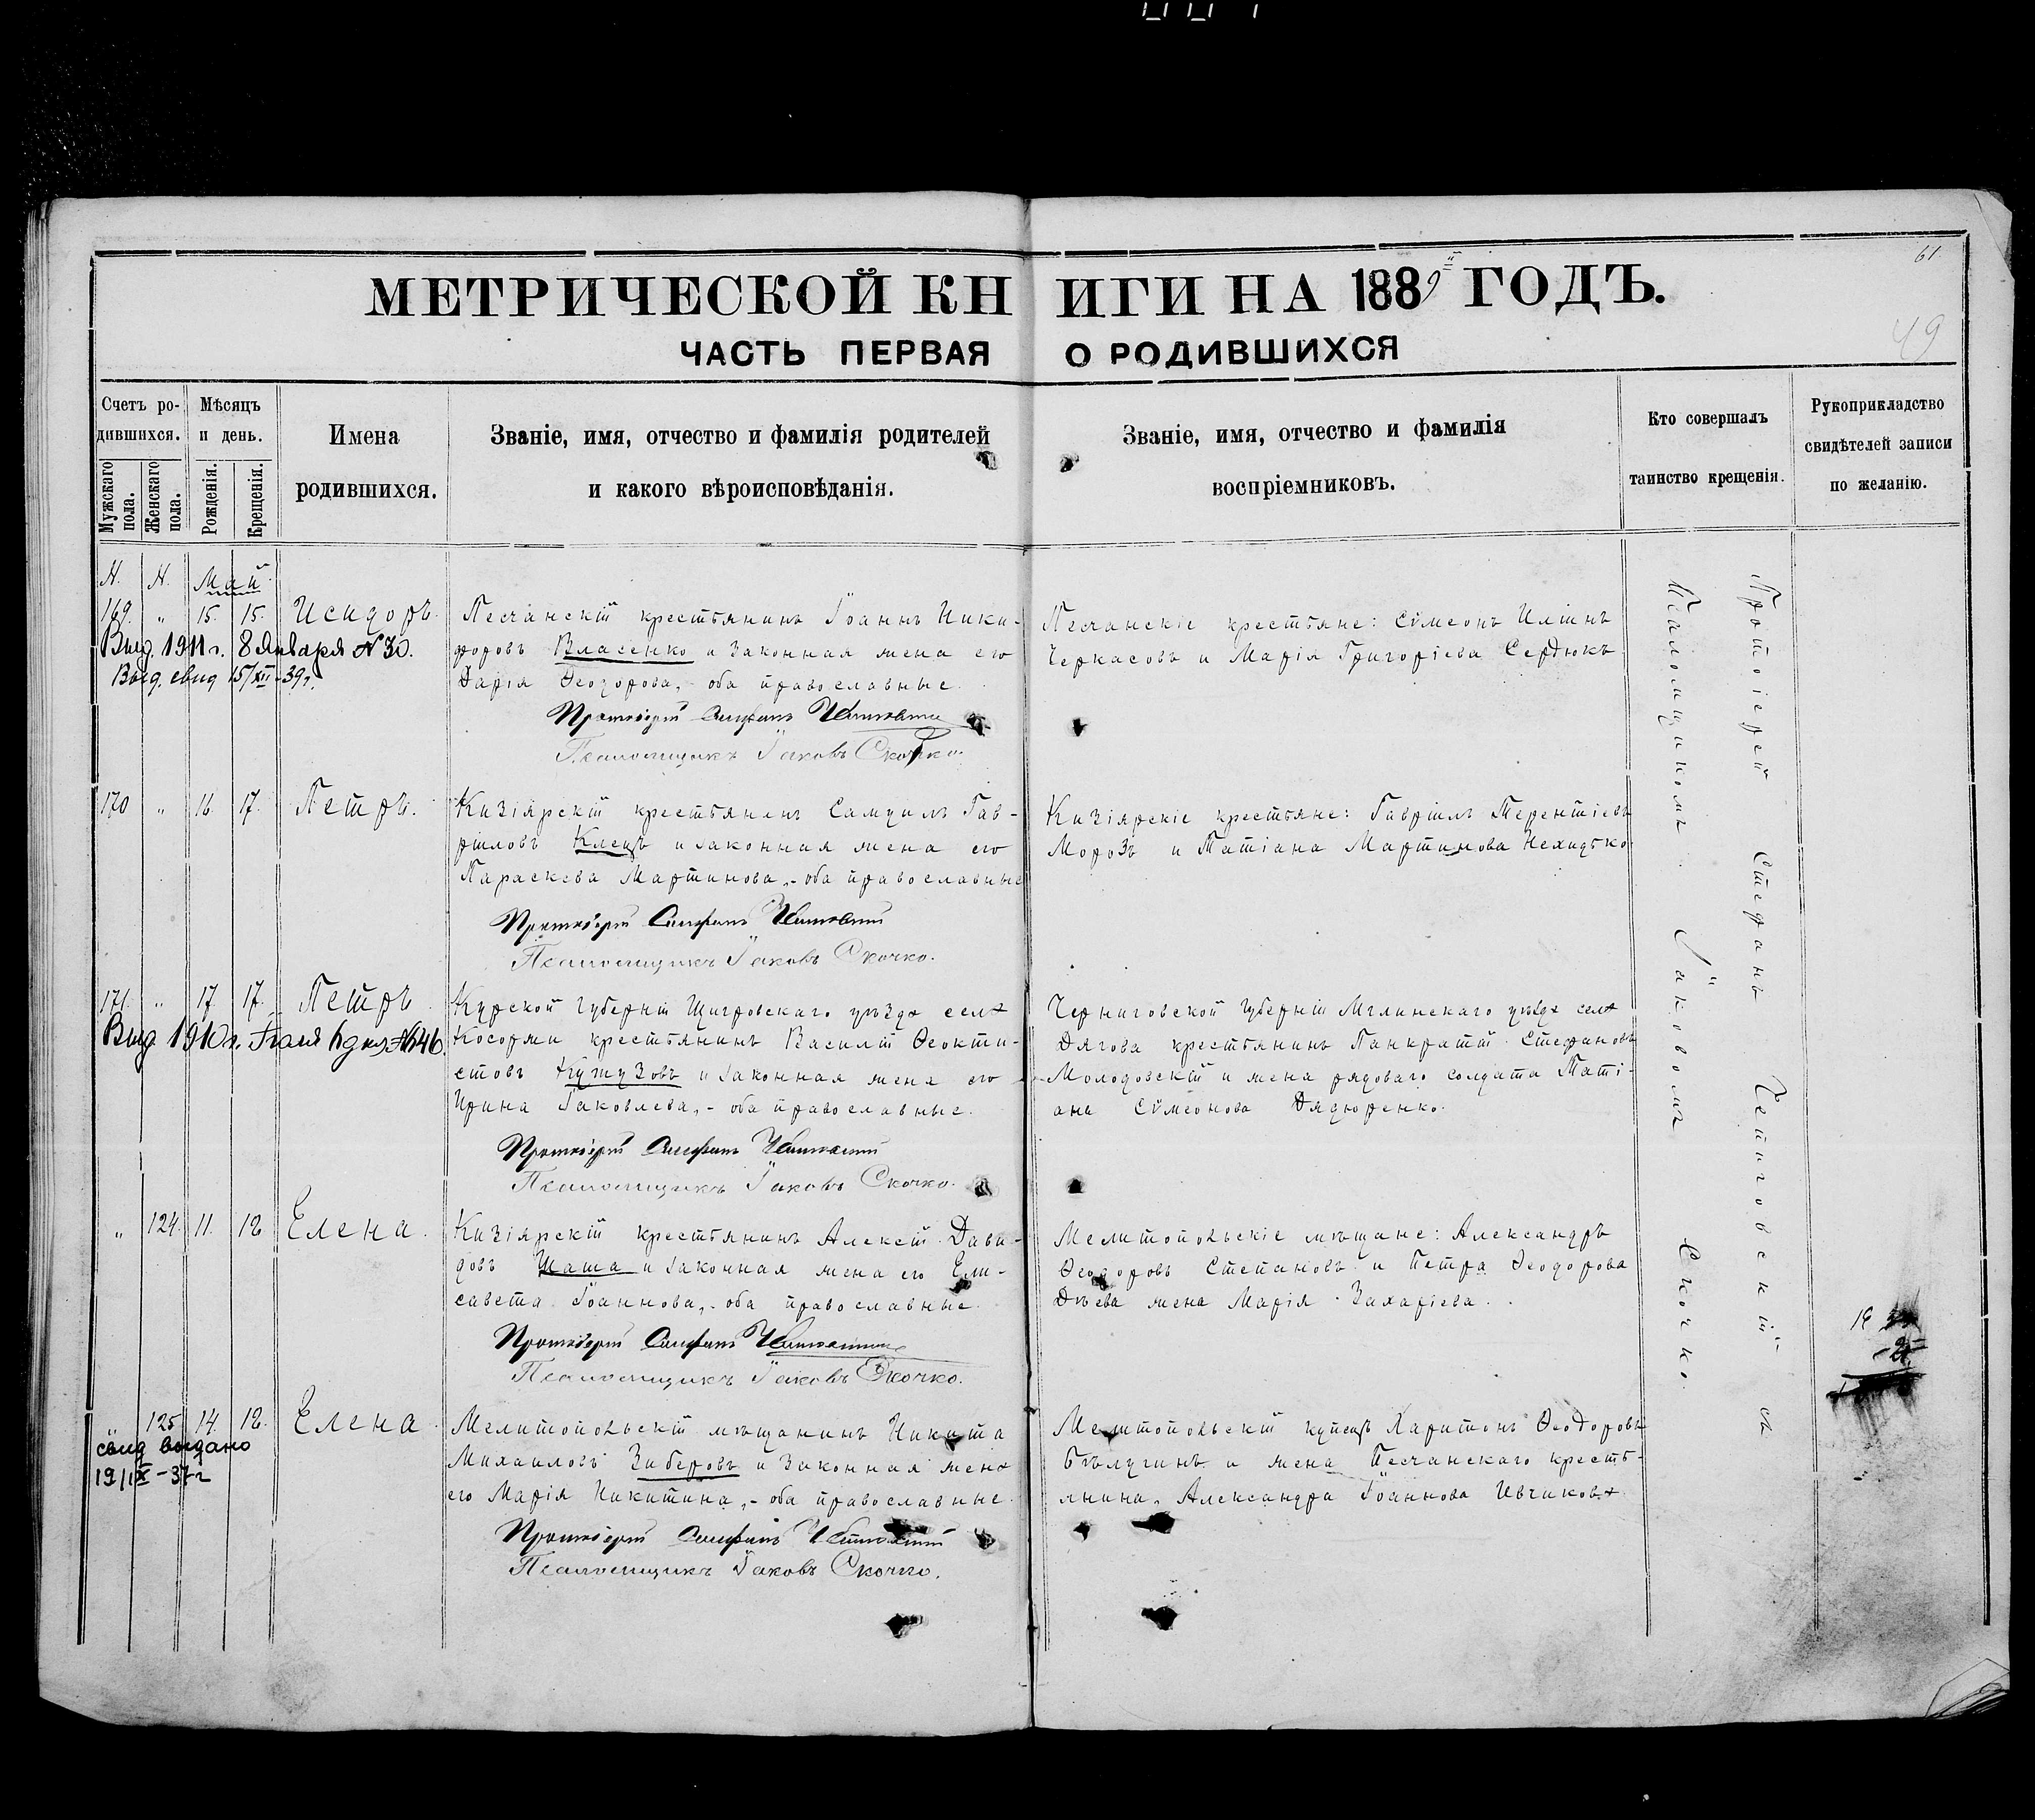 61.
МЕТРИЧЕСКОЙ КНИГИ НА 1889й ГОДЪ.
49
ЧАСТЬ ПЕРВАЯ О РОДИВШИХСЯ
Счетъ родившихся.
Мужскаго пола.
Женскаго пола.
Мѣсяцъ и день.
Рожденія.
Крещенія.
Имена родившихся.
Званіе, имя, отчество и фамилія родителей
и какого вѣроисповѣданія.
Званіе, имя, отчество и фамилія
воспріемниковъ.
Кто совершалъ
таинство крещенія.
Рукоприкладство
свидѣтелей записи
по желанію.
Н. Н. Май
169. „ 15. 15. Исидоръ.
Выд. 1911 г. 8 Января № 30.
Выд. свид 15/XII-39г.
Песчанскій крестьянинъ Іоаннъ Ники-
форовъ Власенко и законная жена его
Дарія Ѳеодорова, - оба православные.
Протоіерей Стефанъ
Псаломщикъ Іаковъ Скочко.
Песчанскіе крестьяне: Сѵмеонъ Иліинъ
Черкасовъ и Марія Григоріева Сердюкъ
170 „ 16. 17. Петръ.
Кизіярскій крестьянинъ Самуилъ Гав-
ріиловъ Клецъ и законная жена его
Параскева Мартинова, - оба православные
Протоіерей Стефанъ
Псаломщикъ Іаковъ Скочко.
Кизіярскіе крестьяне: Гавріилъ Терентіевъ
Морозъ и Татіана Мартинова
171. „ 17. 17. Петръ
Выд. 1910 г.
Курской губерніи Щигровскаго уѣзда села
Косоржи крестьянинъ Василій Ѳеокти-
стовъ Кутузовъ и законная жена его
Ирина Іаковлева, - оба православные.
Протоіерей Стефанъ
Псаломщикъ Іаковъ Скочко.
Черниговской губерніи Мглинскаго уѣзда села
Дягова крестьянинъ Панкратій Стефановъ
Молодовскій и жена рядоваго солдата Таті-
ана Сѵмеонова Дядюренко.
„ 124. 11. 12 Елена.
Кизіярскій крестьянинъ Алексій Дави-
довъ Шата и законная жена его Ели-
савета Іоаннова, - оба православные.
Протоіерей Стефанъ
Псаломщикъ Іаковъ Скочко.
Мелитопольскіе мѣщане: Александръ
Ѳеодоровъ Степановъ и Петра Ѳеодорова
Дѣева жена Марія Захаріева.
„ 125. 14. 12. Елена.
свид выдано
19/IX-37г
Мелитопольскій мѣщанинъ Никита
Михаиловъ Зиберовъ и законная жена
его Марія Никитина, - оба православные.
Протоіерей Стефанъ
Псаломщикъ Іаковъ Скочко.
Мелитопольскій купецъ Харитонъ Ѳеодоровъ
Бѣлугинъ и жена Песчанскаго кресть-
янина, Александра Іоаннова Ивчикова
Протоіерей Стефанъ съ
Псаломщикомъ Іаковомъ Скочко.